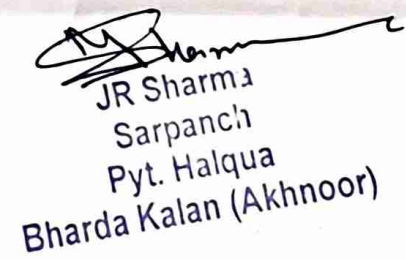 JR Sharma
Sarpanch
Pyt. Halqua
Bharda Kalan (Akhnoor)